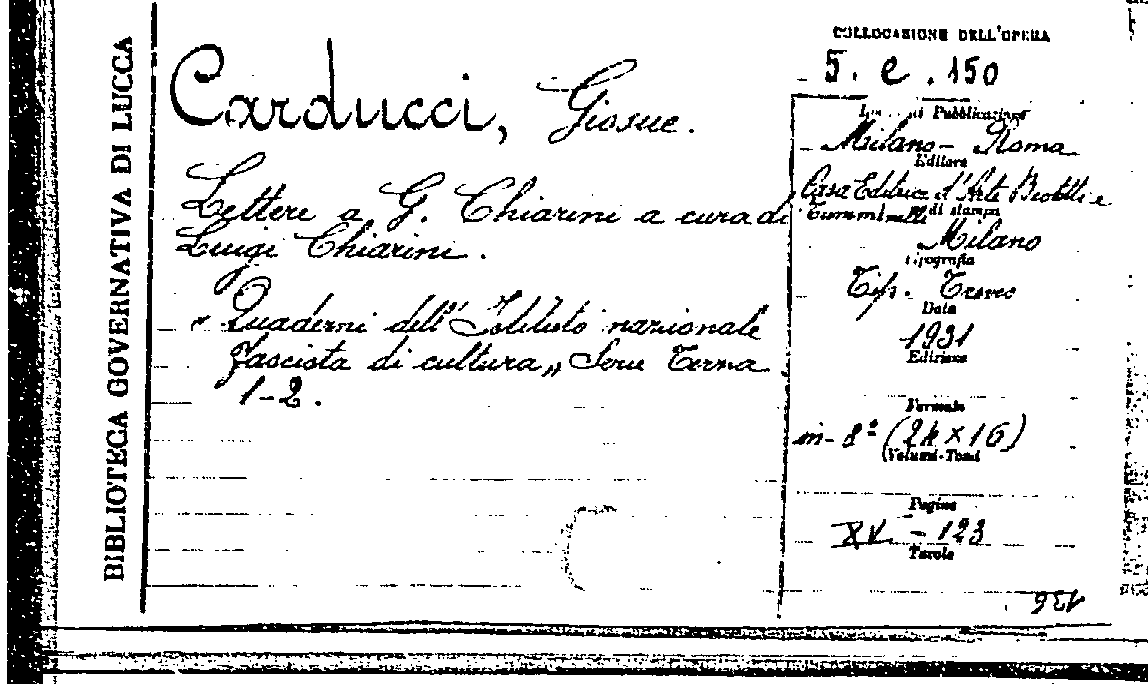 BIBLIOTECA GOVERNATIVA DI LUCCA
Carducci, Giosue.
Lettere a G. Chiarini a cura di
Luigi Chiarini.
" Quaderni dell'Istituto nazionale
fascista di cultura,, Serie Terna
1-2.
COLLOCAZIONE DELL'OPERA
5. e. 150
Pubblicazione
Milano - Roma
Editore
Casa Editrice d'Arte Bestetti e
Tumminelli
di stampa
Milano
Tipografia
Tip. Treves
Data
1931
Edizione
Formato
in-8º (24 x 16)
(Volumi-Tomi
Pagine
XV - 123
Tavole